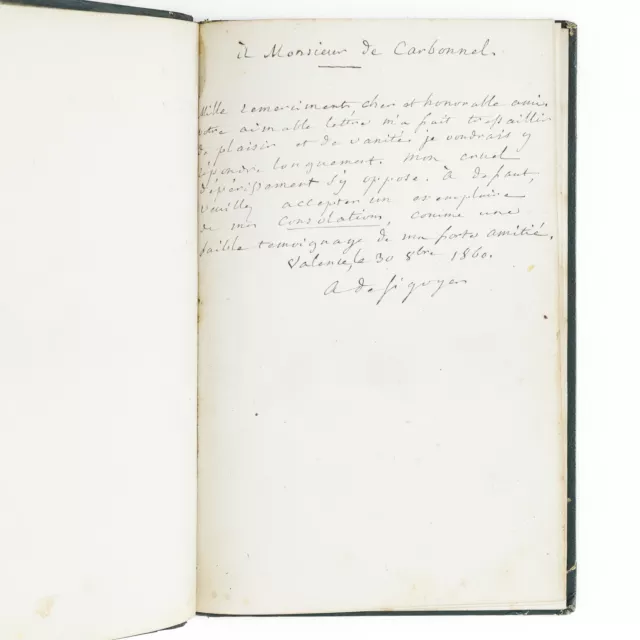 à Monsieur de Carbonnel.
Mille remerciments cher et honorable ami.
votre aimable lettre m'a fait tressaillir
de plaisir et de vanité. je voudrais y
répondre longuement. mon cruel
dépérissement s'y oppose. à défaut,
veuillez accepter un exemplaire
de mes Consolations, comme une
faible temoignage de ma forte amitié.
Valence, le 30 8bre 1860.
A de Sigoyer